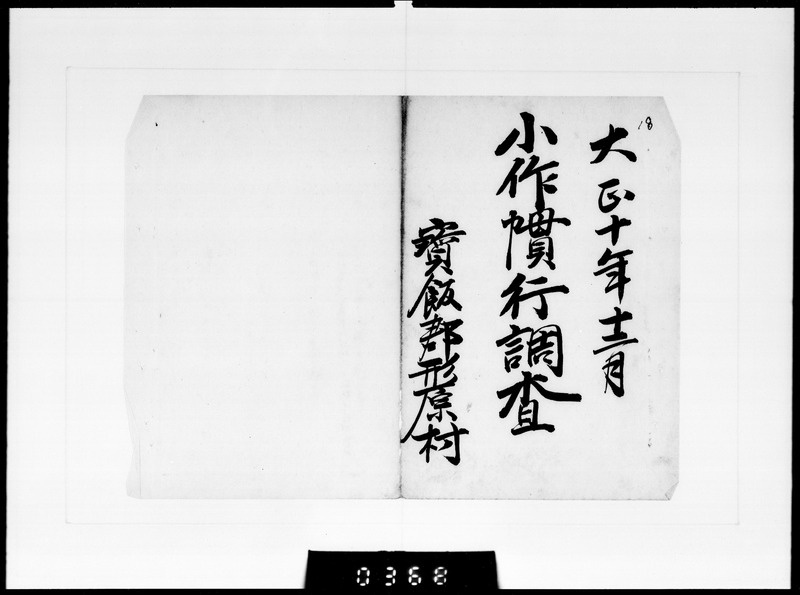 18
大正十年十二月
小作慣行調査
寳飯郡形原村
0368